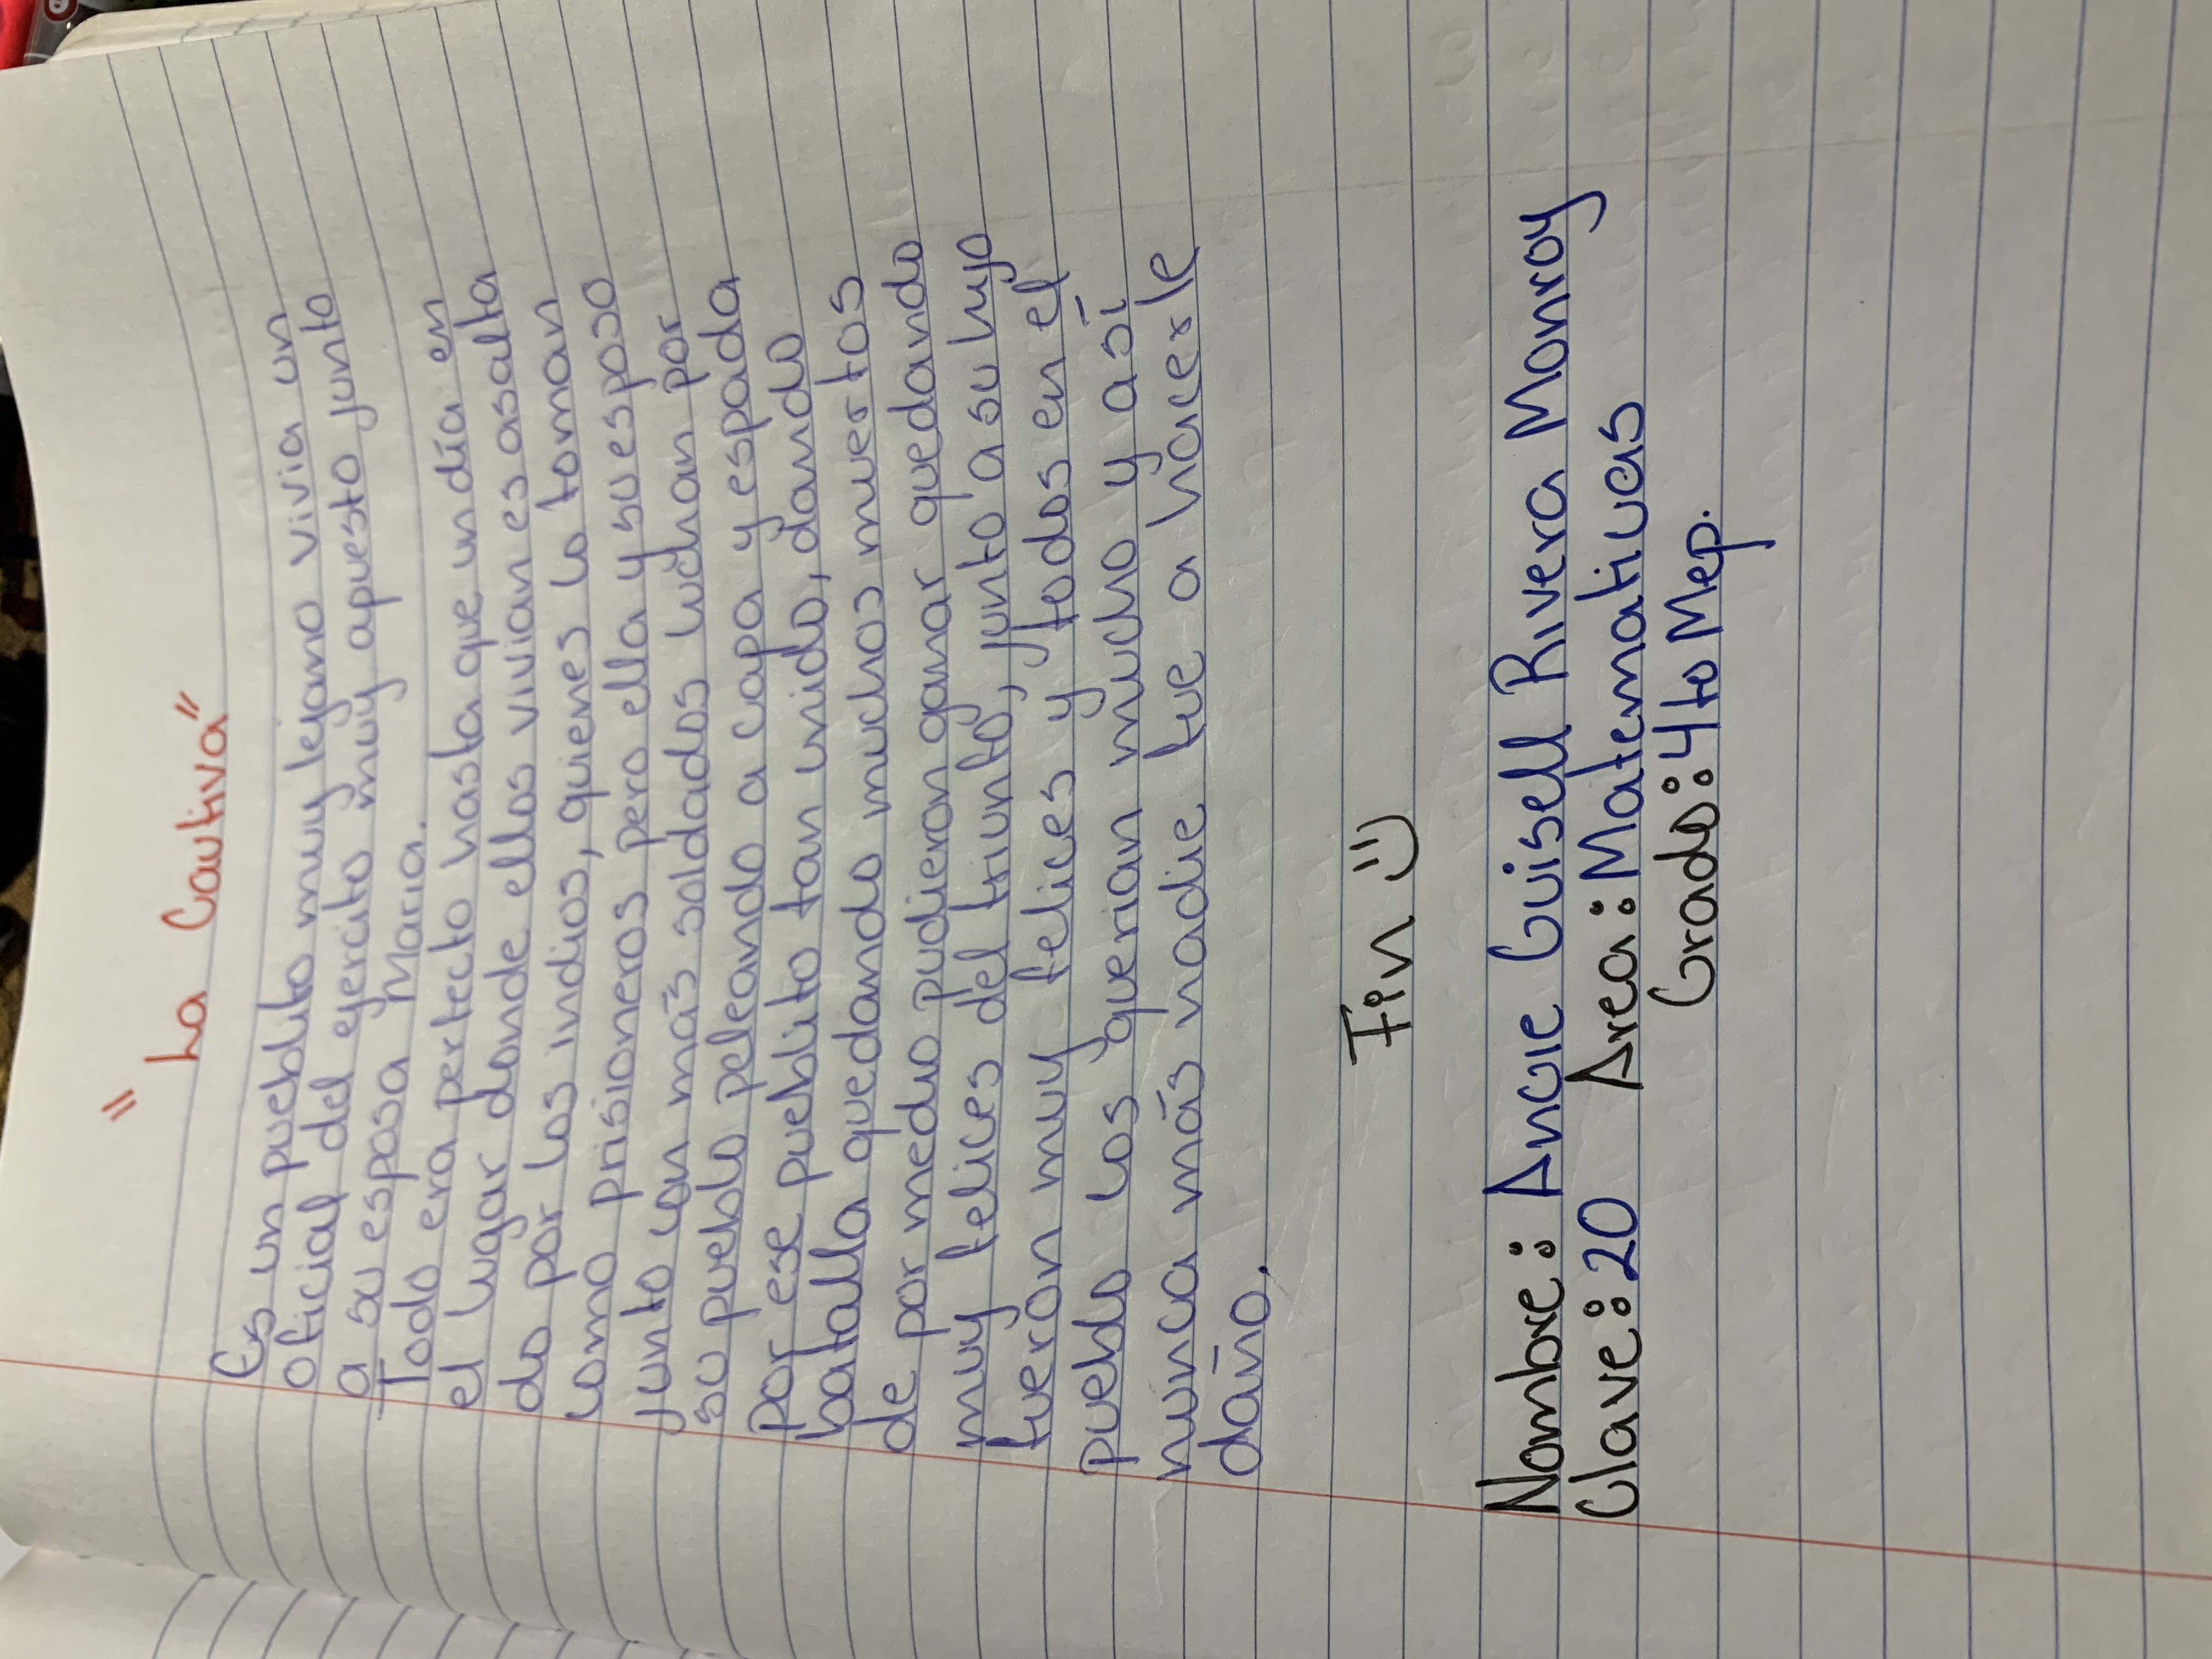 " La Cautiva"
Es un pueblito muy lejano vivia un
oficial del ejercito muy apuesto junto
a su esposa Maria.
Todo era perfecto hasta que un día en
el lugar donde ellos vivian es asalta
do por los indios, quienes lo toman
como prisioneros pero ella y su esposo
junto con más soldados luchan por
su pueblo peleando a capa y espada
por ese pueblito tan unido, dando
batalla quedando muchos muertos
de por medio pudieron ganar quedando
muy felices del triunfo, junto a su hijo
fueron muy felices y todos en el
pueblo los querian mucho y así
nunca más nadie fue a hacerle
daño.
Fin =)
Nombre: Angie Guisell Rivera Monroy
Clave: 20 Area: Matematicas
Grado: 4to Mep.